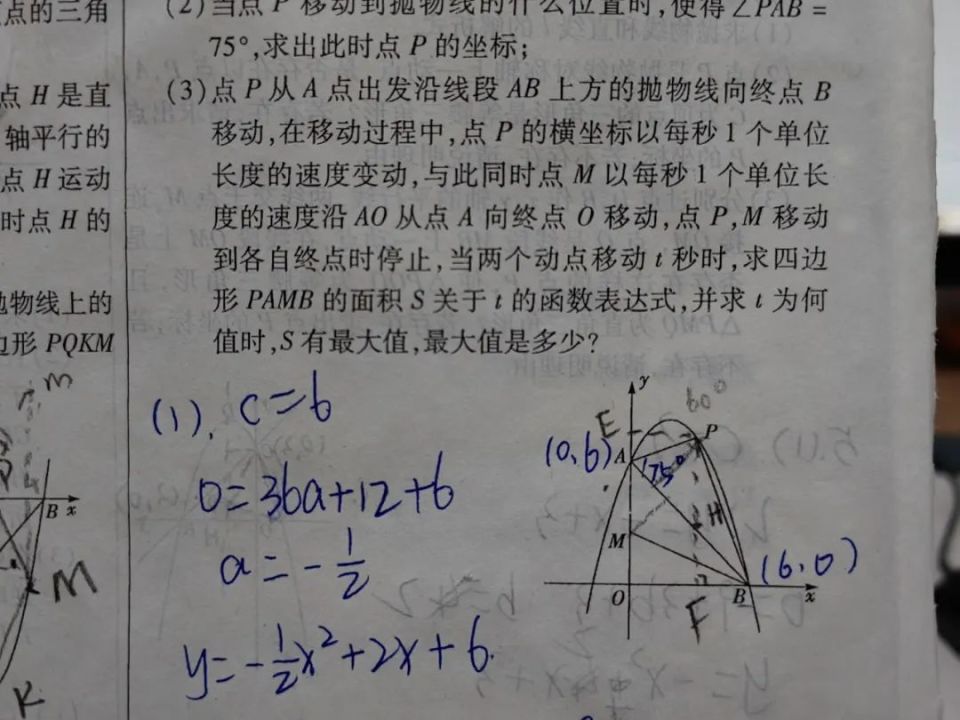 点的三角
点 H 是直
轴平行的
点 H 运动
时点 H 的
物线上的
边形 PQKM
m
B x
M
K
(2)当点 P 移动到抛物线的什么位置时,使得∠PAB=
75°,求出此时点 P 的坐标;
(3)点 P 从 A 点出发沿线段 AB 上方的抛物线向终点 B
移动,在移动过程中,点 P 的横坐标以每秒 1 个单位
长度的速度变动,与此同时点 M 以每秒 1 个单位长
度的速度沿 AO 从点 A 向终点 O 移动,点 P,M 移动
到各自终点时停止,当两个动点移动 t 秒时,求四边
形 PAMB 的面积 S 关于 t 的函数表达式,并求 t 为何
值时,S 有最大值,最大值是多少?
(1). c=6
0=36a+12+6
a=-1/2
y=-1/2x²+2x+6.
y
60°
E
P
(0,6) A
75°
H
M
(6,0)
O
F
B
x